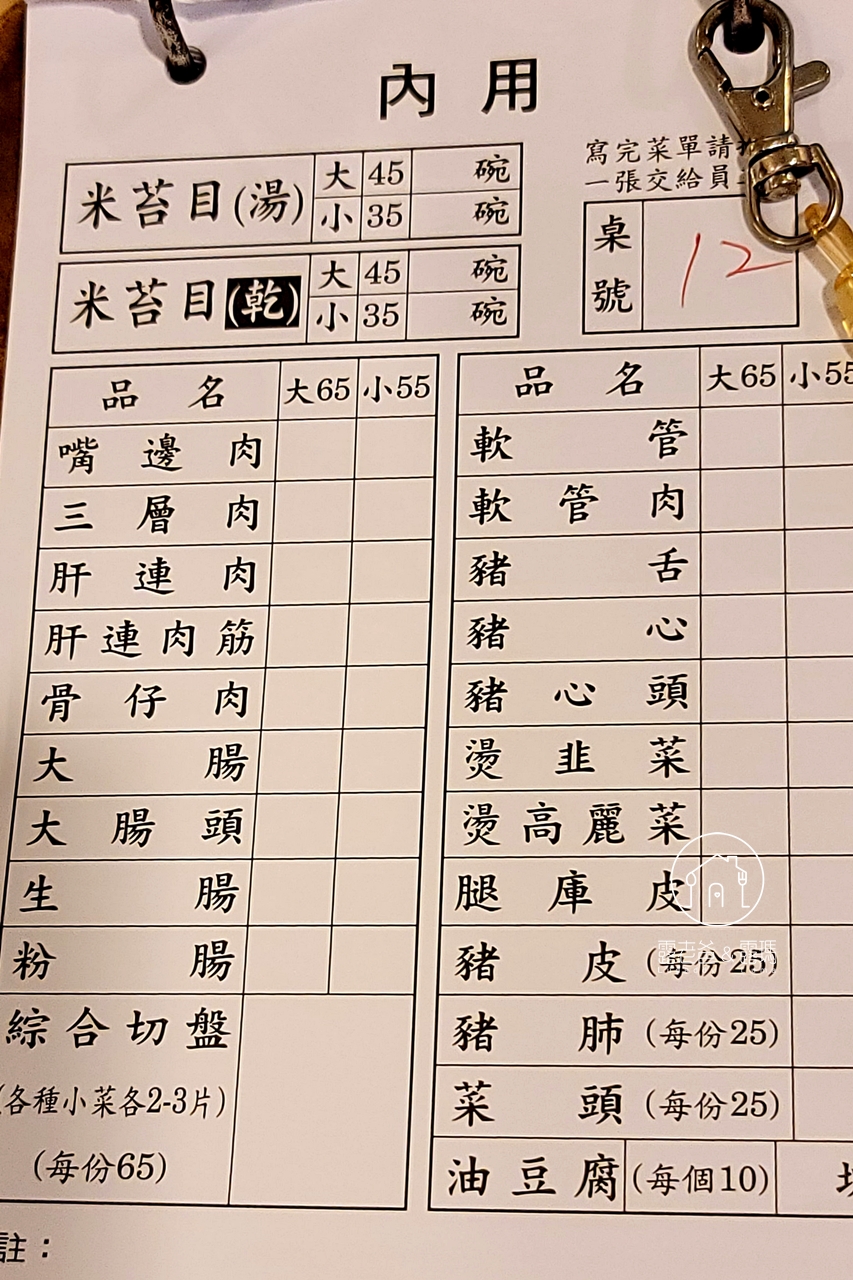 內用
寫完菜單請
一張交給員
桌號 12
米苔目(湯) 大 45 碗
小 35 碗
米苔目(乾) 大 45 碗
小 35 碗
品名 大65 小55
嘴邊肉
三層肉
肝連肉
肝連肉筋
骨仔肉
大腸
大腸頭
生腸
粉腸
綜合切盤
(各種小菜各2-3片)
(每份65)
品名 大65 小55
軟管
軟管肉
豬舌
豬心
豬心頭
燙韭菜
燙高麗菜
腿庫皮
豬皮(每份25)
豬肺(每份25)
菜頭(每份25)
油豆腐(每個10)
註：